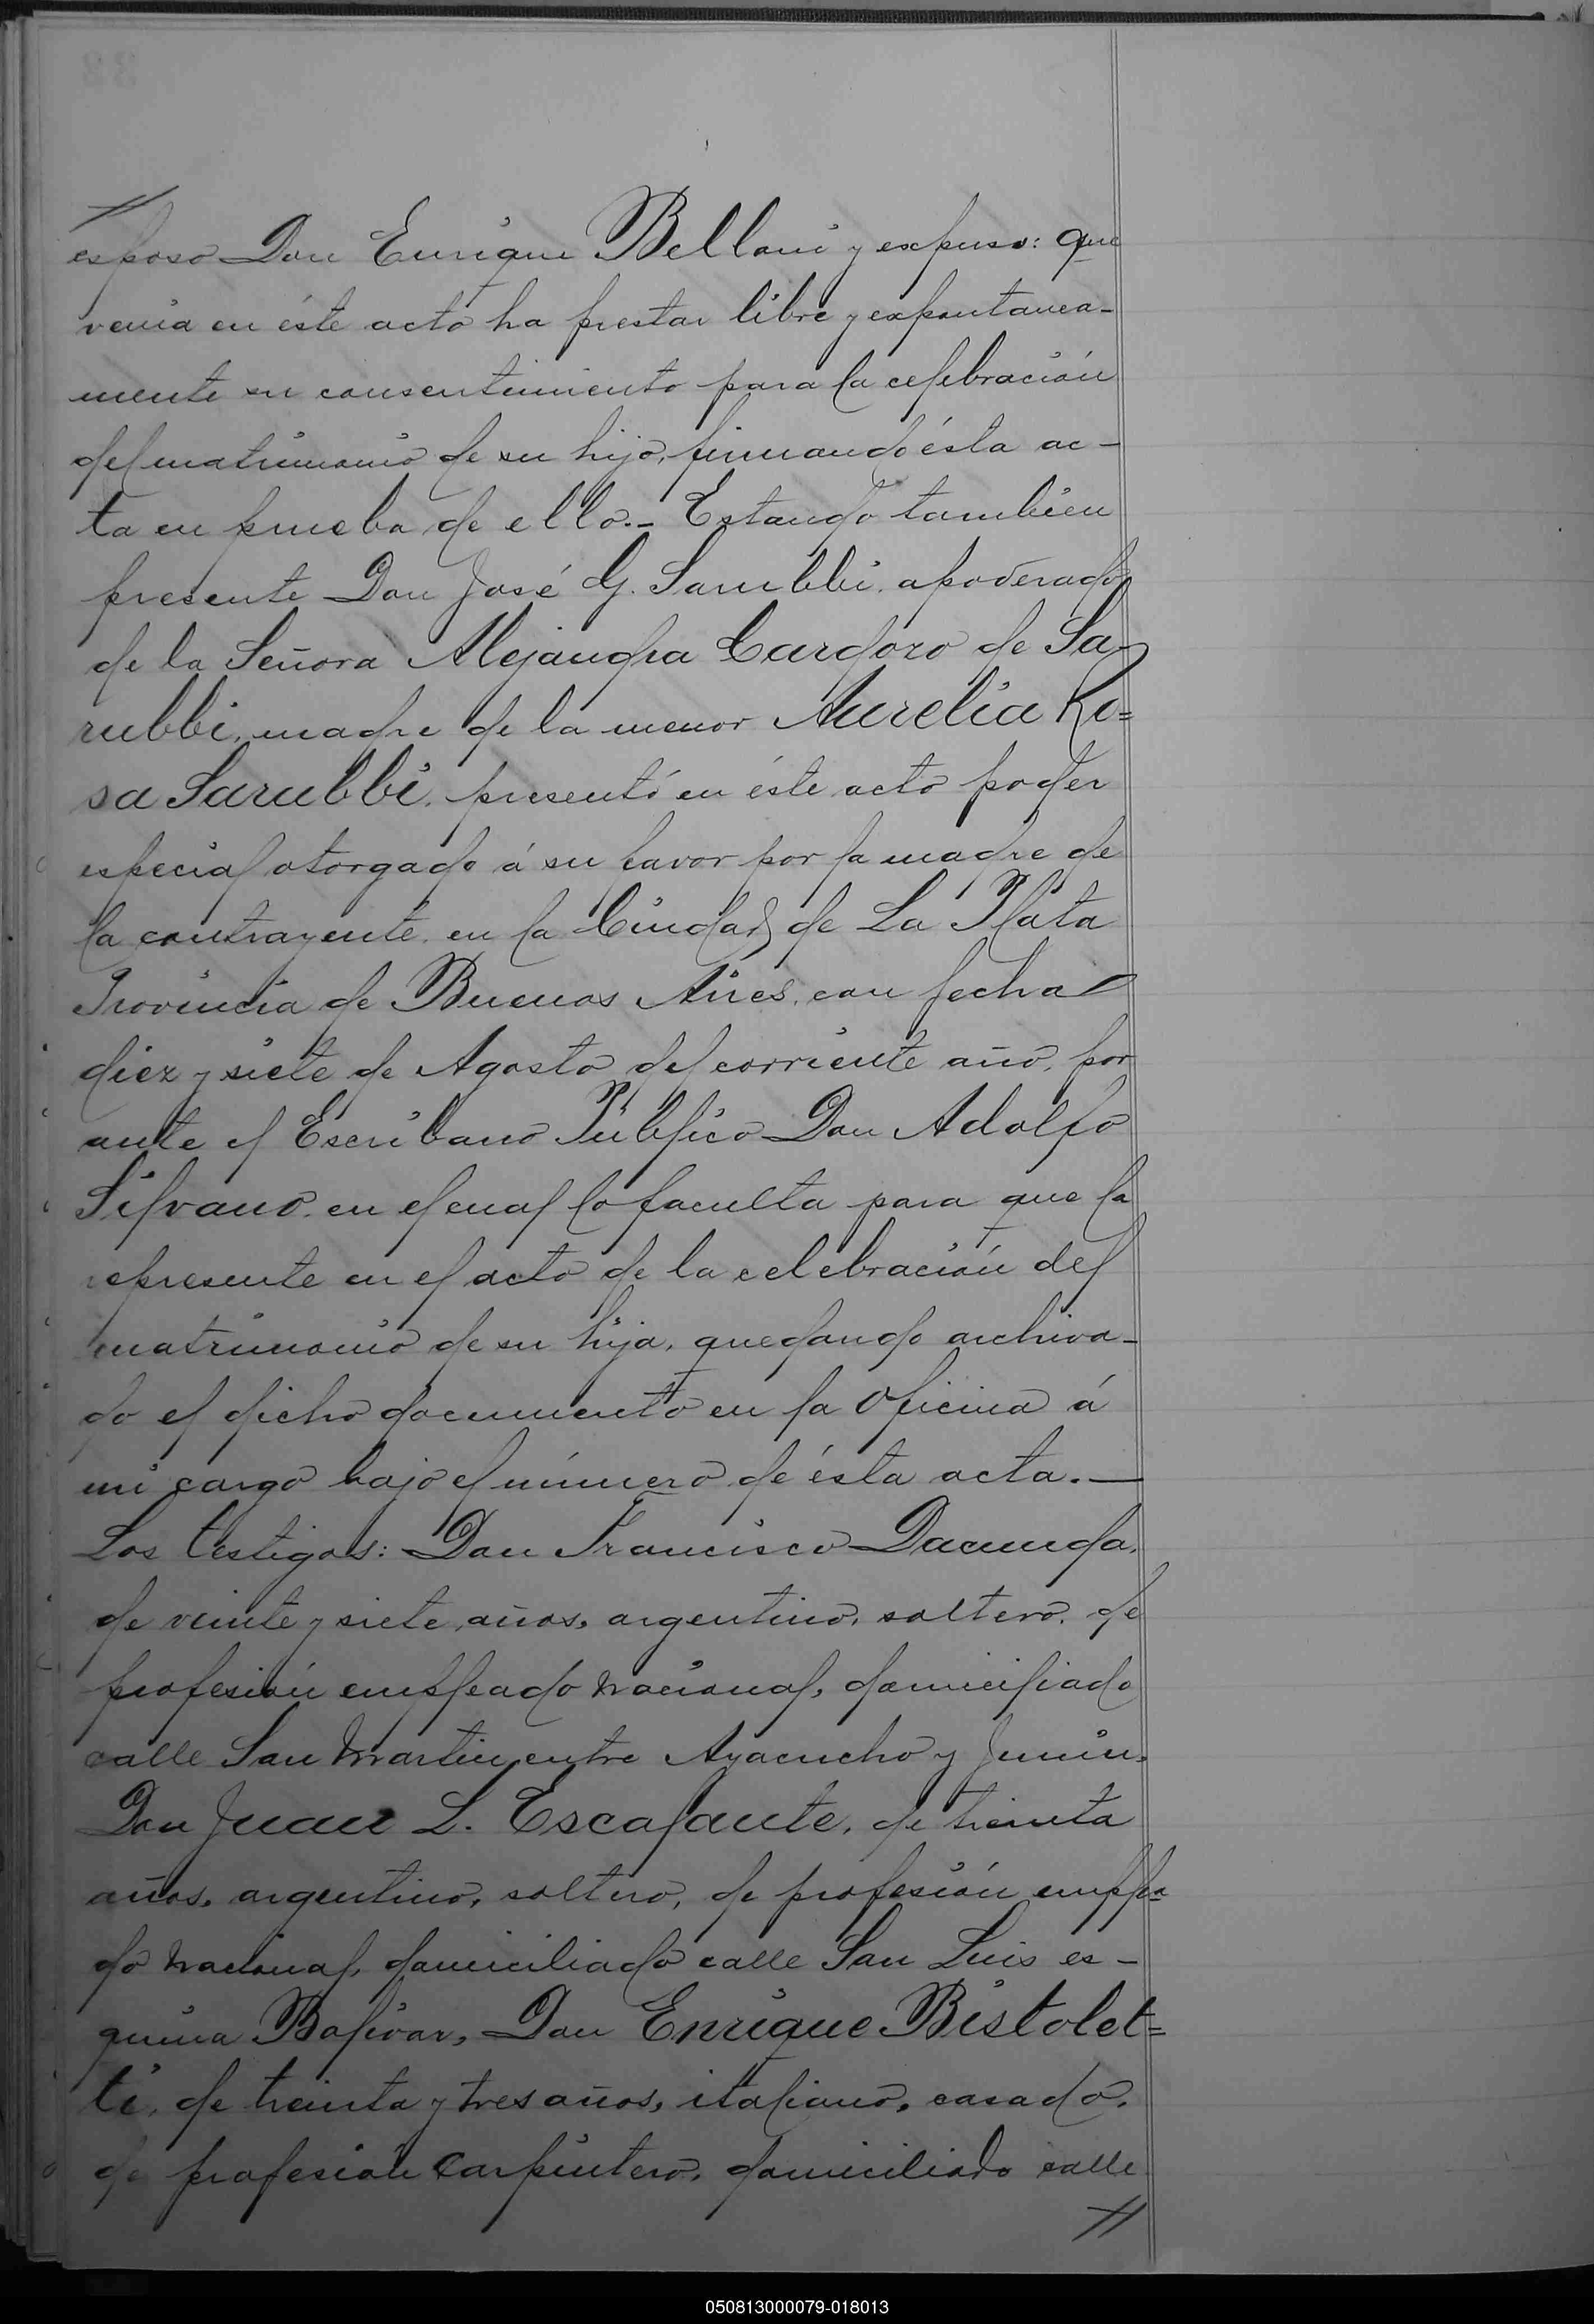 //
esposo Don Enrique Bellani y expuso: que
venia en éste acto ha prestar libre y expontanea-
mente su consentimiento para la celebración
del matrimonio de su hijo, firmando ésta ac-
ta en prueba de ello.- Estando tambien
presente Don José G. Sarubbi, apoderado
de la Señora Alejandra Cardozo de Sa-
rubbi, madre de la menor Aurelia Ro=
sa Sarubbi, presentó en éste acto poder
especial otorgado á su favor por la madre de
la contrayente, en la Ciudad de La Plata
Provincia de Buenos Aires, con fecha
diez y siete de Agosto del corriente año, por
ante el Escribano Público Don Adolfo
Silvano, en el cual lo faculta para que la
represente en el acto de la celebración del
matrimonio de su hija, quedando archiva-
do el dicho documento en la Oficina á
mi cargo bajo el número de ésta acta.—
Los testigos: Don Francisco Dacunda,
de veinte y siete años, argentino, soltero, de
profesión empleado nacional, domiciliado
calle San Martin entre Ayacucho y Junin,
Don Juan L. Escalante, de treinta
años, argentino, soltero, de profesión emplea
do nacional, domiciliado calle San Luis es-
quina Bolivar, Don Enrique Bistolet=
ti, de treinta y tres años, italiano, casado,
de profesión Carpintero, domiciliado calle
//
050813000079-018013